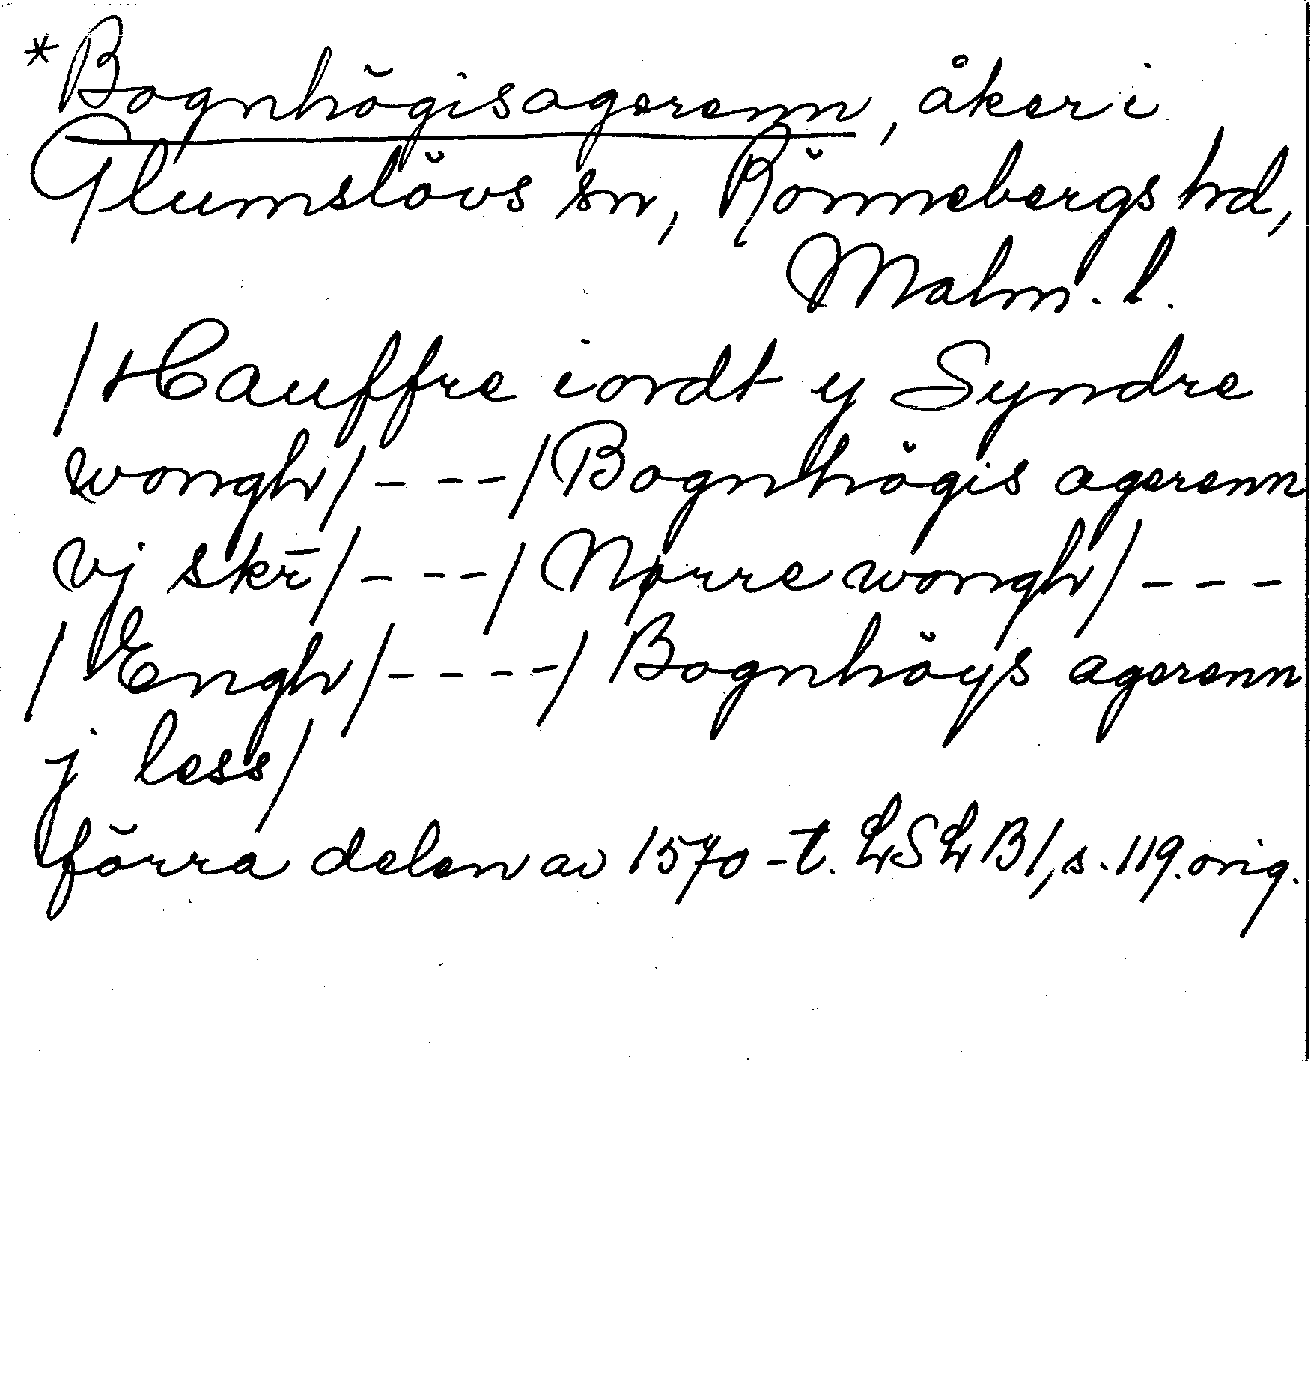 *Bognhögisagerenn, åker i
Glumslövs sn, Rönnebergs hd,
Malm. l.
/Hauffre iordt y Syndre
wongh/- - - -/Bognhögis agerenn
vj skr̄/- - - -/Nørre wongh/- - -
/Engh/- - - -/Bognhöys agerenn
j less/
förra delen av 1570-t. LSLB1, s. 119. orig.